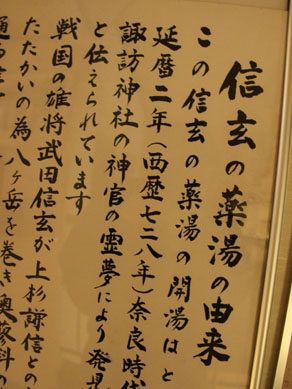 信玄の薬湯の由来
この信玄の薬湯の開湯はと
延暦二年(西歴七二八年)奈良時代
諏訪神社の神官の霊夢により発
と伝えられています
戦国の雄将武田信玄が上杉謙信との
たたかいの為八ヶ岳を巻き奥蓼科の
通る